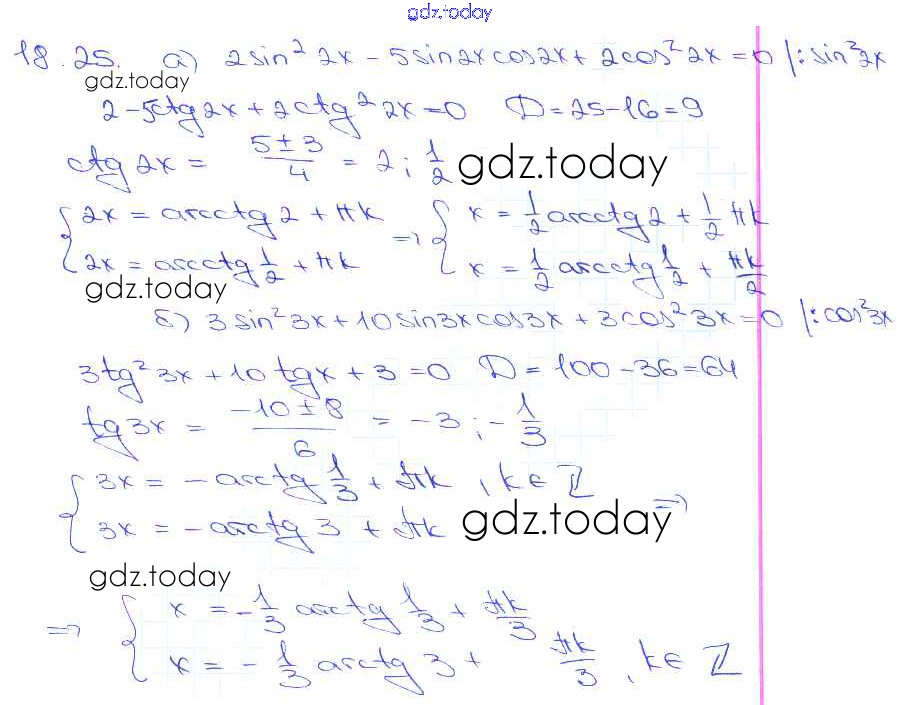 gdz.today
18.25. а) 2sin² 2x - 5sin2x cos2x + 2cos² 2x = 0 |: sin²2x
gdz.today
2 - 5ctg2x + 2ctg² 2x = 0 D = 25 - 16 = 9
ctg 2x = (5 ± 3)/4 = 2; 1/2 gdz.today
{ 2x = arcctg 2 + πk => { x = 1/2 arcctg 2 + 1/2 πk
2x = arcctg 1/2 + πk x = 1/2 arcctg 1/2 + πk/2
gdz.today
б) 3sin² 3x + 10 sin3x cos3x + 3cos² 3x = 0 |: cos²3x
3tg² 3x + 10 tgx + 3 = 0 D = 100 - 36 = 64
tg 3x = (-10 ± 8)/6 = -3; -1/3
{ 3x = -arctg 1/3 + πk, k ∈ Z
3x = -arctg 3 + πk gdz.today =>
gdz.today
=> { x = -1/3 arctg 1/3 + πk/3
x = -1/3 arctg 3 + πk/3, k ∈ Z